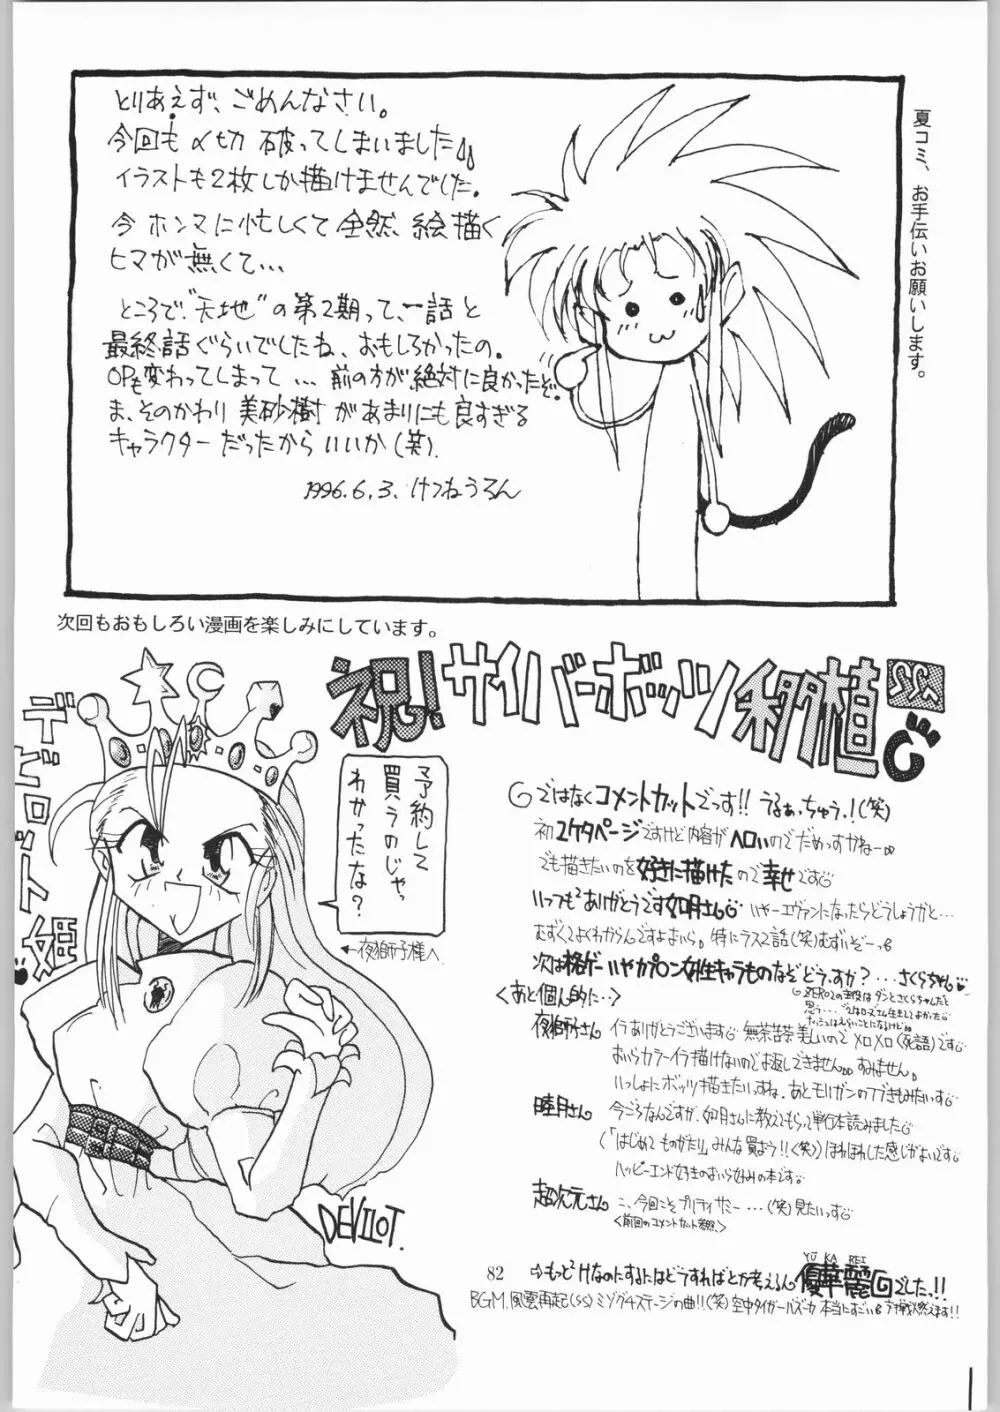 とりあえず、ごめんなさい。
今回も〆切破ってしまいました
イラストも2枚しか描けませんでした。
今ホンマに忙しくて全然、絵描く
ヒマが無くて…
ところで、"天地"の第2期って、一話と
最終話ぐらいでしたね、おもしろかったの。
OPも変わってしまって…前の方が絶対に良かったぞ。
ま、そのかわり美砂樹があまりにも良すぎる
キャラクターだったからいいか(笑)。
1996.6.3、けつねうろん
夏コミ、お手伝いお願いします。
次回もおもしろい漫画を楽しみにしています。
祝!サイバーボッツ移植
デビロット姫
予約して
買うのじゃっ
わかったな?
←夜獅子様へ
DEVILOT.
ではなくコメントカットでっす!!うるぁっちゅう!(笑)
初2ケタページですけど内容がヘロいのでだめっすかねー
でも描きたいのを好きに描けたので幸せです
いっつも²ありがとうです如月さん いやーエヴァンになったらどうしょうかと…
むずくてよくわからんですよおいら。特にラスト2話(笑)むずいぞーっ
次は格ゲーいやカプコン女性キャラものなぞどうすか?…さくらちゃん
ZERO2の主役はダンとさくらちゃんだと
思う…
<あと個人的に…>
夜獅子さん イラありがとうございます 無茶苦茶美しいのでメロメロ(死語)です
おいらカラーイラ描けないのでお返しできません。すみません。
いっしょにボッツ描きたいすね。あとモリガンの
睦月さん 今ごろなんですが、如月さんに教えてもらって単行本読みました
(「はじめてものがたり」みんな買よう!!(笑))ほれぼれした感じがよいです
ハッピーエンド好きのおいら好みの本です
超次元さん こ、今回こそプリティサミー…(笑)見たいっす
<前回のコメントカット参照。>
82
⇨もっと²Hなのにするにはどうすればとか考えるん
YU KA REI
優華麗でした。!!
BGM.風雲再起(SS)ミヅグチステージの曲!!(笑)空中タイガールズーカ本当にすごい 対戦燃えます!!